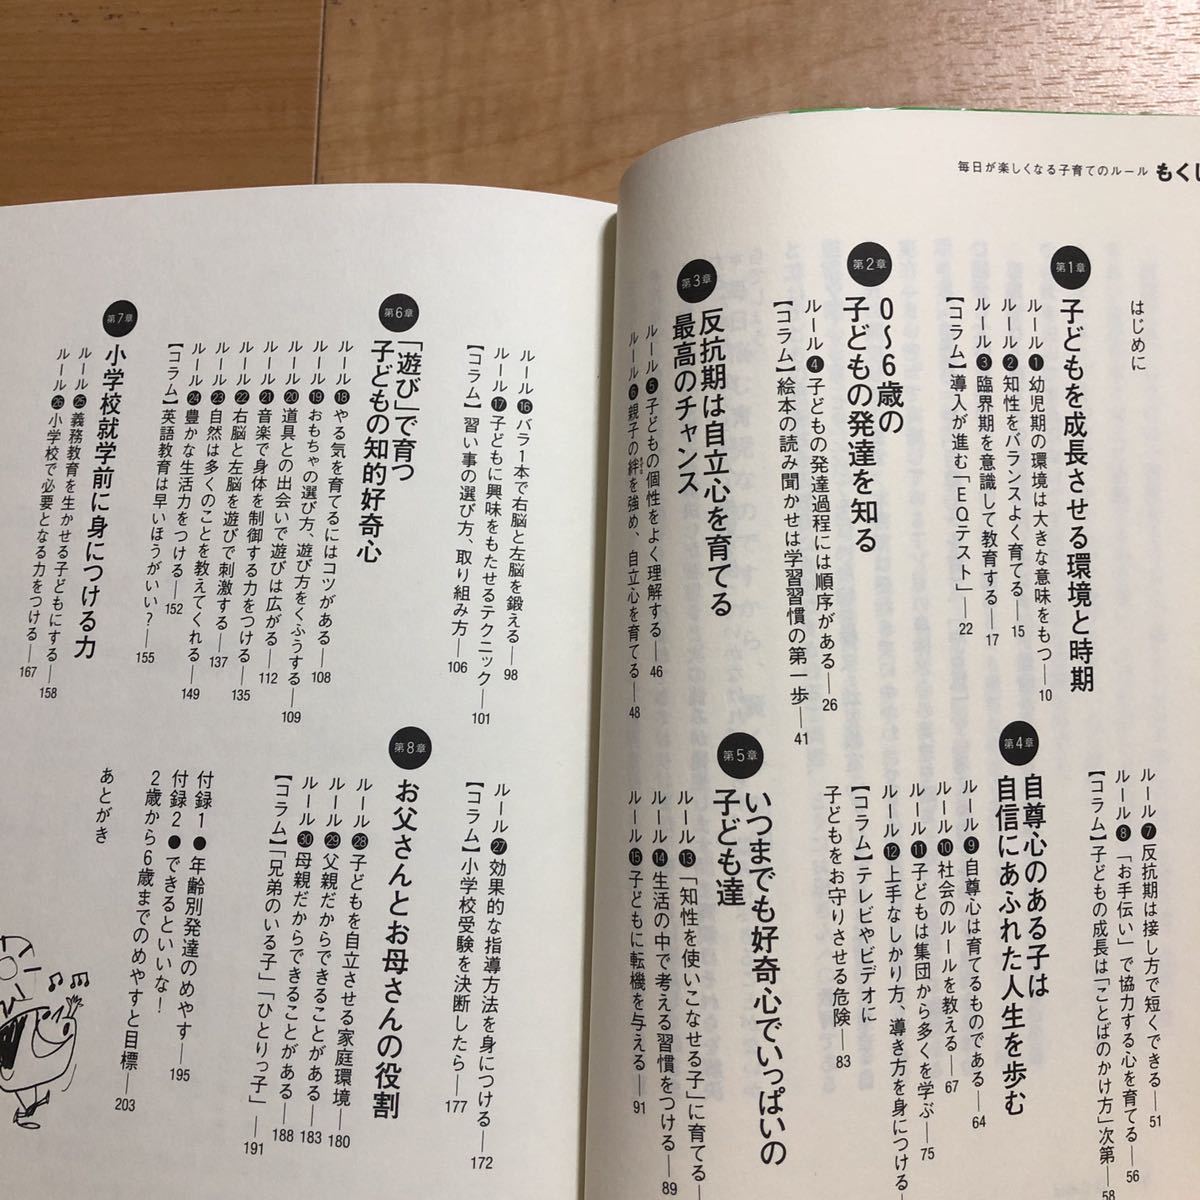 毎日が楽しくなる子育てのルール もくじ
はじめに
第1章
子どもを成長させる環境と時期
ルール❶幼児期の環境は大きな意味をもつ—10
ルール❷知性をバランスよく育てる—15
ルール❸臨界期を意識して教育する—17
【コラム】導入が進む「EQテスト」—22
第2章
0〜6歳の
子どもの発達を知る
ルール❹子どもの発達過程には順序がある—26
【コラム】絵本の読み聞かせは学習習慣の第一歩—41
第3章
反抗期は自立心を育てる
最高のチャンス
ルール❺子どもの個性をよく理解する—46
ルール❻親子の絆を強め、自立心を育てる—48
ルール❼反抗期は接し方で短くできる—51
ルール❽「お手伝い」で協力する心を育てる—56
【コラム】子どもの成長は「ことばのかけ方」次第—58
第4章
自尊心のある子は
自信にあふれた人生を歩む
ルール❾自尊心は育てるものである—64
ルール❿社会のルールを教える—67
ルール⓫子どもは集団から多くを学ぶ—75
ルール⓬上手なしかり方、導き方を身につける—
【コラム】テレビやビデオに
子どもをお守りさせる危険—83
第5章
いつまでも好奇心でいっぱいの
子ども達
ルール⓭「知性を使いこなせる子」に育てる—
ルール⓮生活の中で考える習慣をつける—89
ルール⓯子どもに転機を与える—91
ルール⓰バラ1本で右脳と左脳を鍛える—98
ルール⓱子どもに興味をもたせるテクニック—101
【コラム】習い事の選び方、取り組み方—106
第6章
「遊び」で育つ
子どもの知的好奇心
ルール⓲やる気を育てるにはコツがある—108
ルール⓳おもちゃの選び方、遊び方をくふうする—109
ルール⓴道具との出会いで遊びは広がる—112
ルール㉑音楽で身体を制御する力をつける—135
ルール㉒右脳と左脳を遊びで刺激する—137
ルール㉓自然は多くのことを教えてくれる—149
ルール㉔豊かな生活力をつける—152
【コラム】英語教育は早いほうがいい?—155
第7章
小学校就学前に身につける力
ルール㉕義務教育を生かせる子どもにする—158
ルール㉖小学校で必要となる力をつける—167
ルール㉗効果的な指導方法を身につける—172
【コラム】小学校受験を決断したら—177
第8章
お父さんとお母さんの役割
ルール㉘子どもを自立させる家庭環境—180
ルール㉙父親だからできることがある—183
ルール㉚母親だからできることがある—188
【コラム】「兄弟のいる子」「ひとりっ子」—191
付録1●年齢別発達のめやす—195
付録2●できるといいな!
2歳から6歳までのめやすと目標—203
あとがき